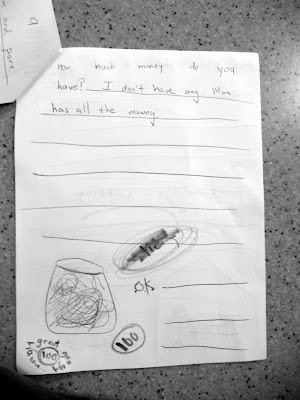 a
n and gore
How much money do you
have? I don't have any Mom
has all the money
OK
100
great
100